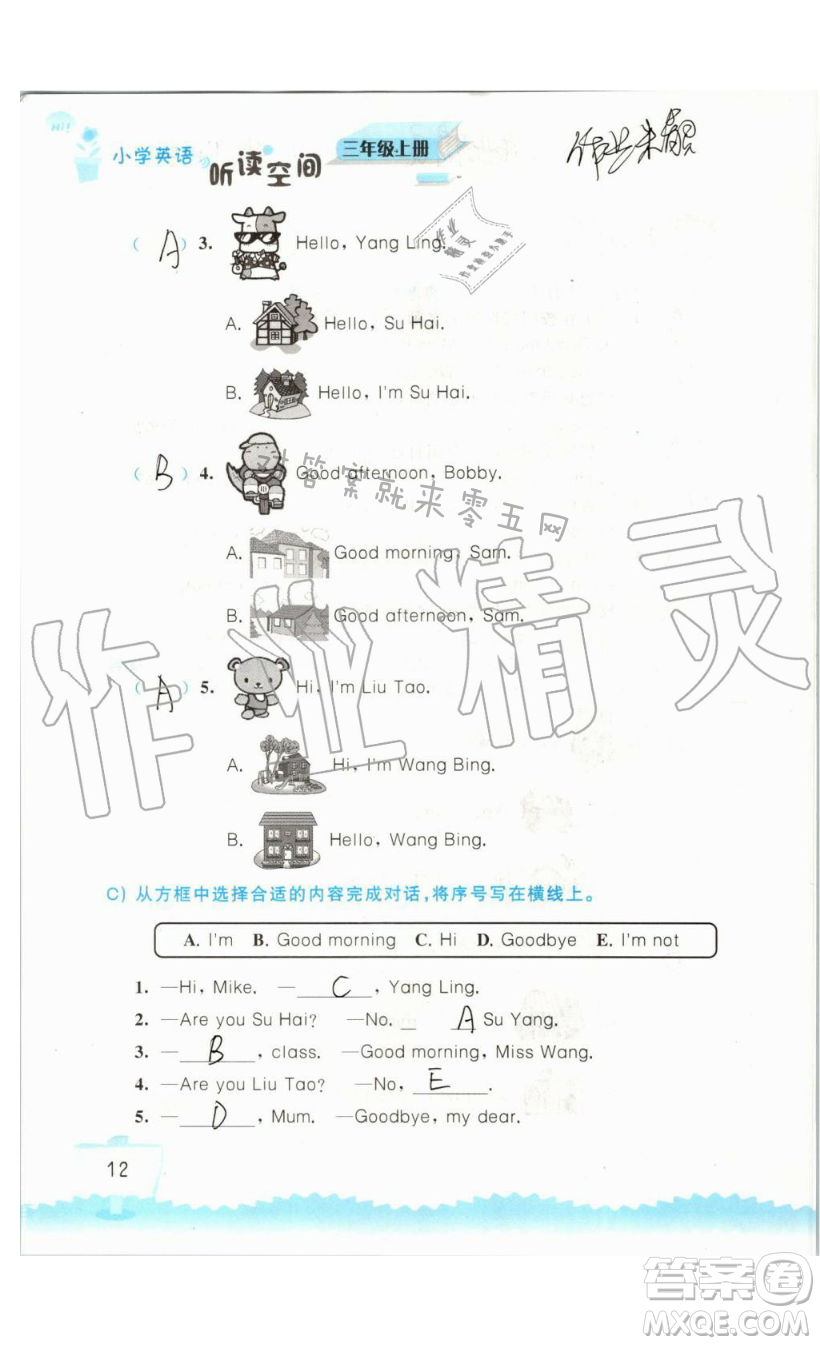 Hi!
小学英语 听读空间 三年级上册
作业来自
作业精灵
作业检查小助手
( A ) 3. Hello, Yang Ling.
A. Hello, Su Hai.
B. Hello, I'm Su Hai.
( B ) 4. Good afternoon, Bobby.
对答案就来零五网
A. Good morning, Sam.
B. Good afternoon, Sam.
作业精灵
( A ) 5. Hi, I'm Liu Tao.
A. Hi, I'm Wang Bing.
B. Hello, Wang Bing.
C) 从方框中选择合适的内容完成对话,将序号写在横线上。
A. I'm B. Good morning C. Hi D. Goodbye E. I'm not
1. —Hi, Mike. — C , Yang Ling.
2. —Are you Su Hai? —No. A Su Yang.
3. — B , class. —Good morning, Miss Wang.
4. —Are you Liu Tao? —No, E .
5. — D , Mum. —Goodbye, my dear.
12
答案卷
MXQE.COM